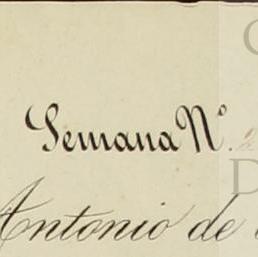 Semana Nº.
Antonio de